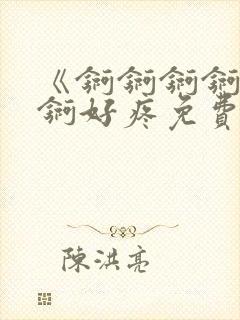 《锕锕锕锕
锕好疼免費
陳洪亮